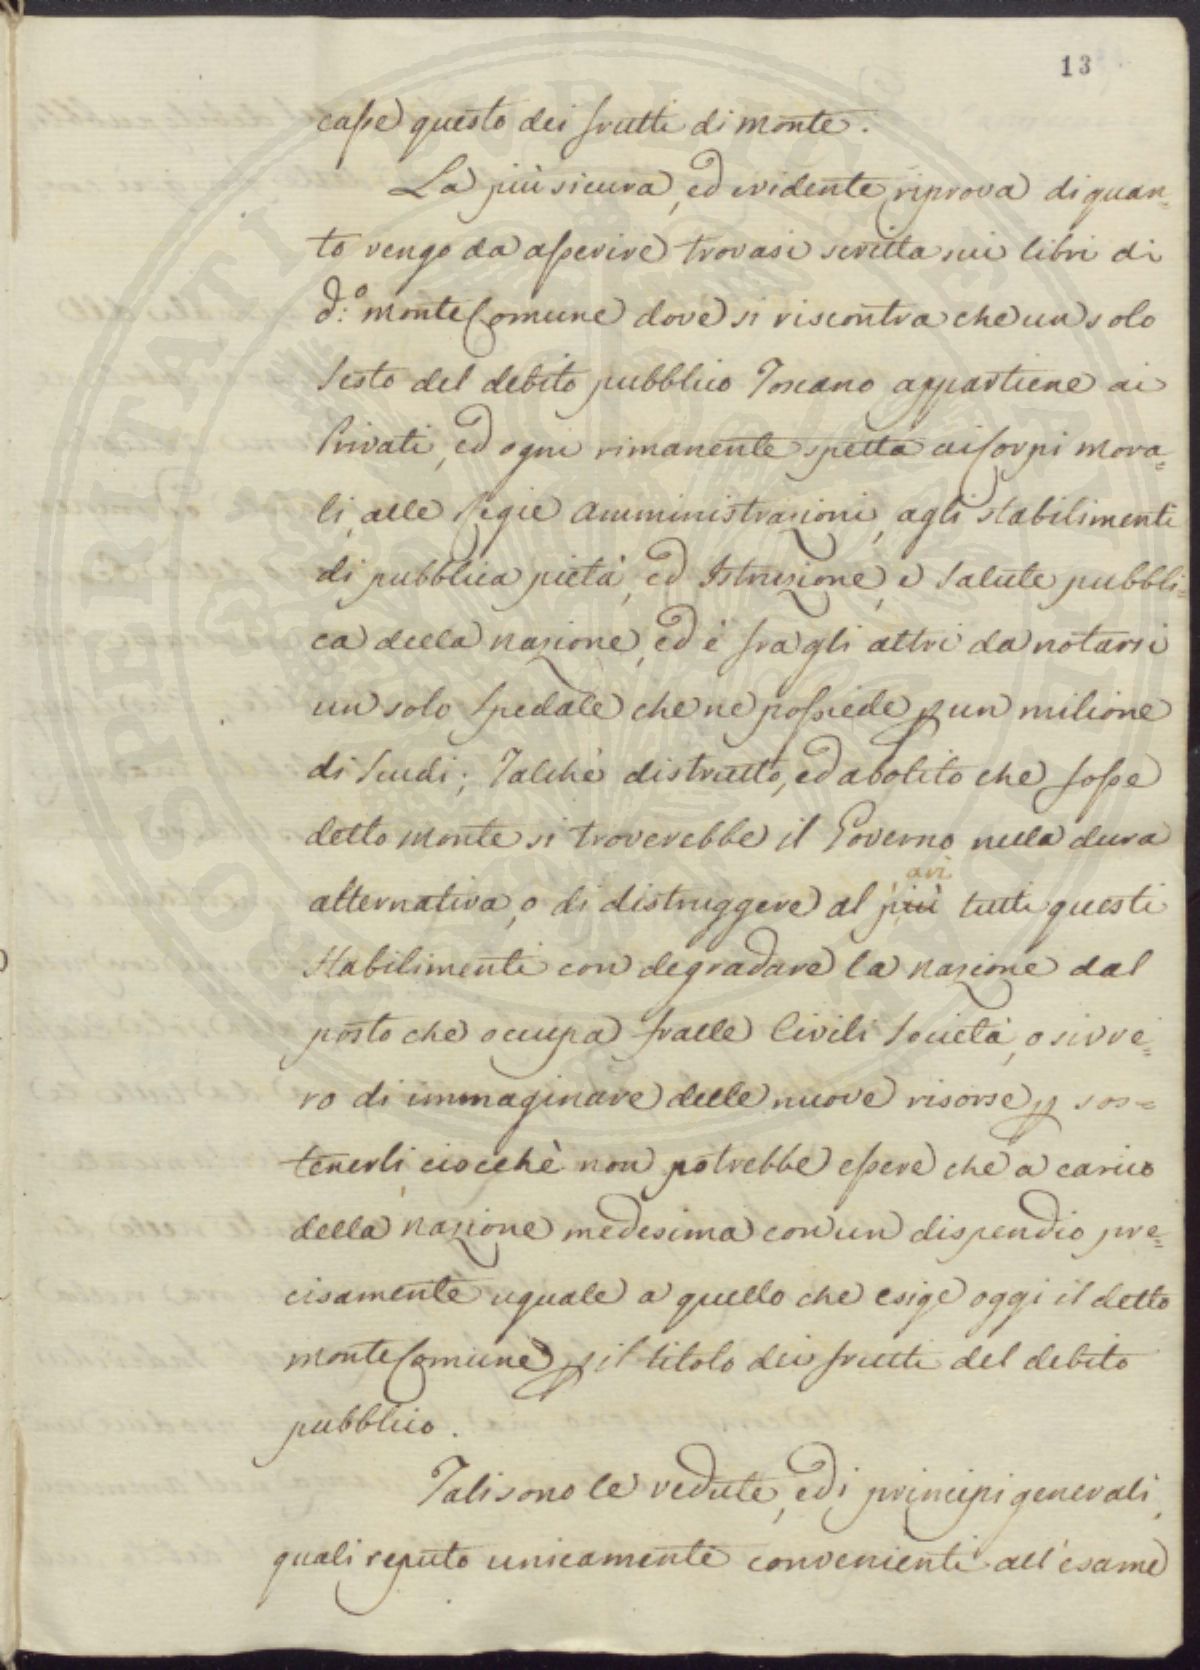 13
casse questo dei frutti di monte.
La più sicura, ed evidente riprova di quan=
to vengo da asserire trovasi scritta sui libri di
d:º monte Comune dove si riscontra che un solo
Sesto del debito pubblico Toscano appartiene ai
Privati, ed ogni rimanente spetta ai Corpi mora=
li, alle Regie amministrazioni, agli stabilimenti
di pubblica pietà, ed Istruzione, e Salute pubbli=
ca della nazione, ed è fra gli altri da notarsi
un solo Spedale che ne possiede p un milione
di Scudi; Talchè distrutto, ed abolito che fosse
detto monte si troverebbe il Governo nella dura
alternativa, o di distruggere al più tutti questi
stabilimenti con degradare la nazione dal
posto che occupa fralle Civili Società, o sivve=
ro di immaginare delle nuove risorse p sos=
tenerli, ciocchè non potrebbe essere che a carico
della nazione medesima con un dispendio pre=
cisamente uguale a quello che esige oggi il detto
monte Comune p il titolo dei frutti del debito
pubblico.
Tali sono le vedute, ed i principi generali,
quali reputo unicamente convenienti all'esame